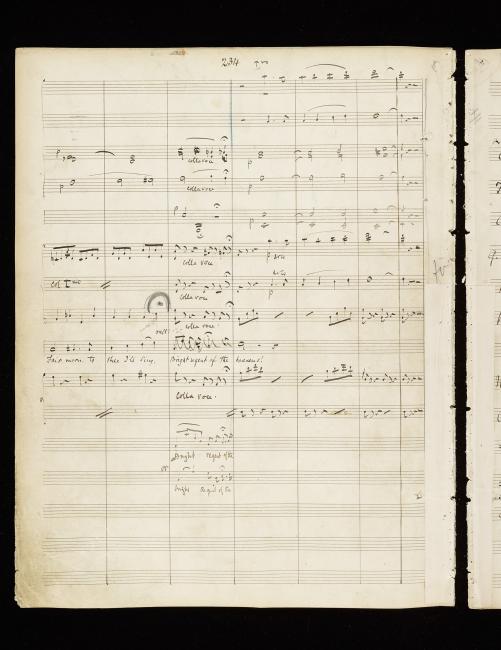 234
8va
p
colla voce
p
p
colla voce
p
p
p
colla voce
p
col Imo
colla voce
p
colla voce.
Fair moon, to thee I'll sing, Bright regent of the heavens!
colla voce.
Bright regent of the
or
bright regent of the